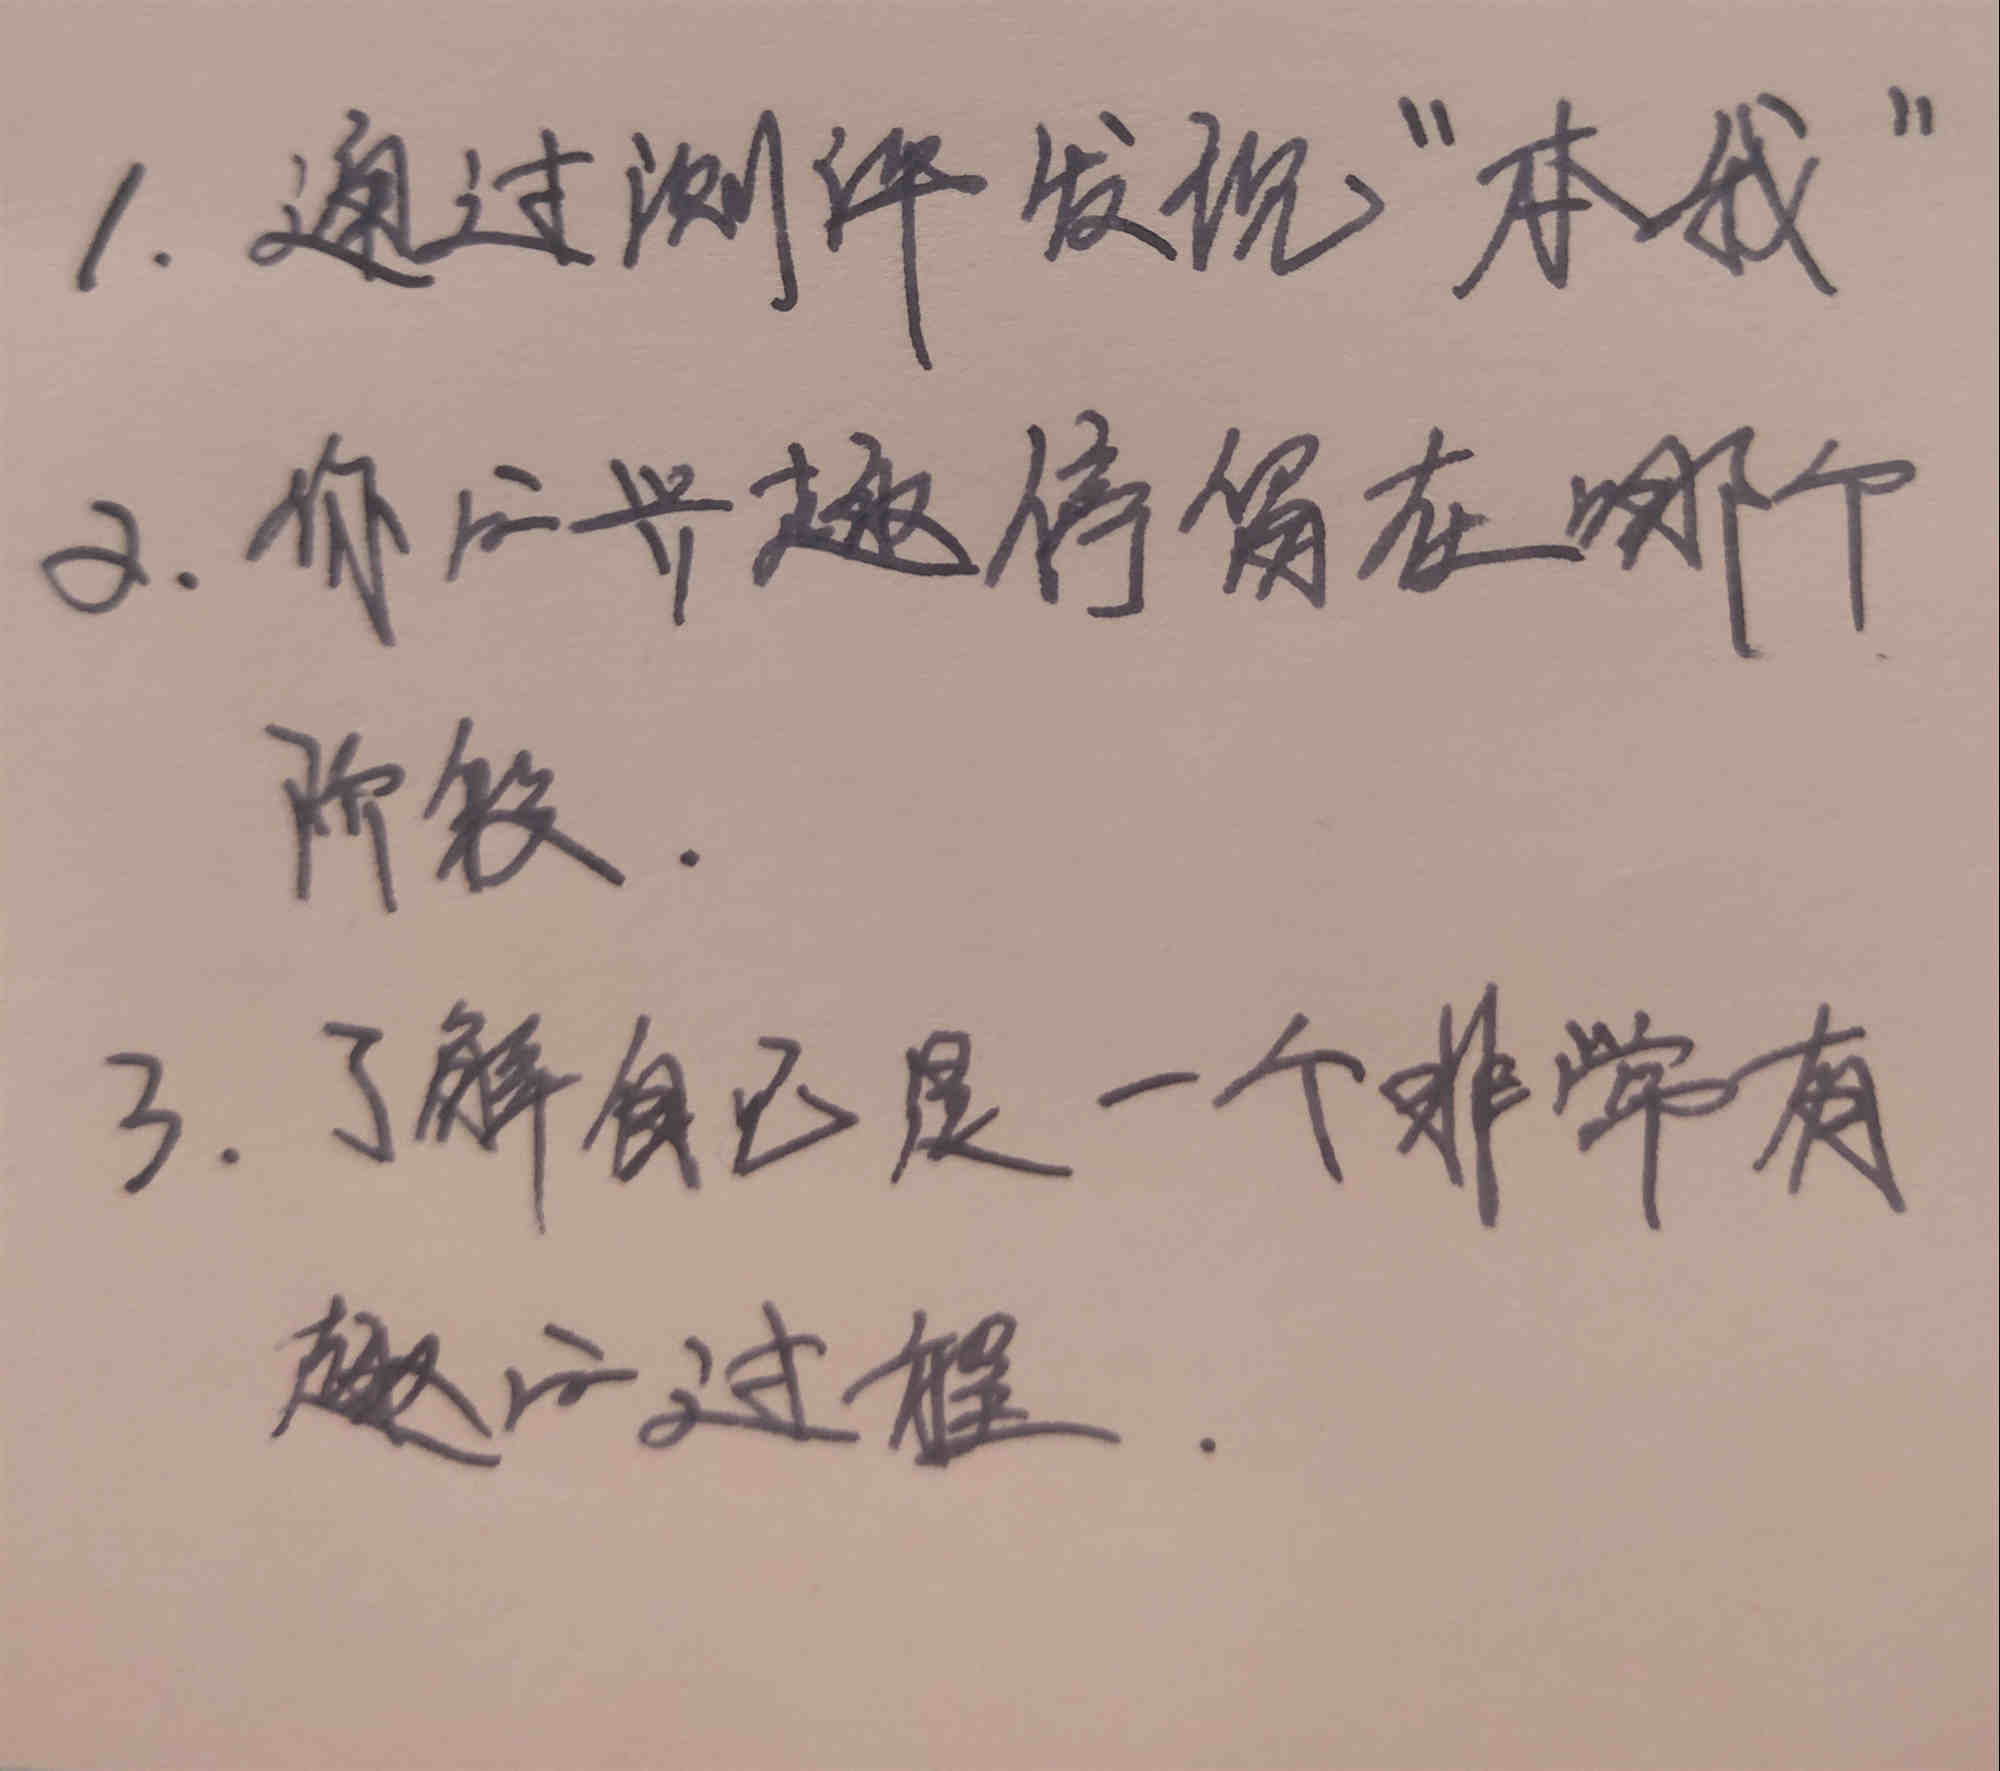 1. 通过测评发现"本我"
2. 你的兴趣停留在哪个
阶段.
3. 了解自己是一个非常有
趣的过程.